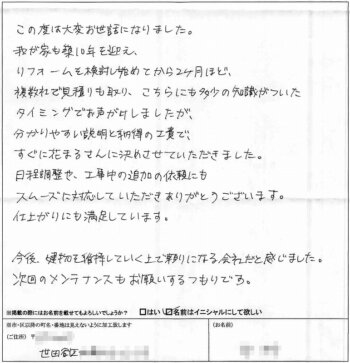 この度は大変お世話になりました。
我が家も築10年を迎え、
リフォームを検討し始めてから2ヶ月ほど、
複数社で見積りも取り、こちらにも多少の知識がついた
タイミングでお声がけしましたが、
分かりやすい説明と納得の工費で、
すぐに花まるさんに決めさせていただきました。
日程調整や、工事中の追加の依頼にも
スムーズに対応していただきありがとうございます。
仕上がりにも満足しています。
今後、建物を維持していく上で頼りになる会社だと感じました。
次回のメンテナンスもお願いするつもりでる。
※掲載の際にはお名前を載せてもよろしいでしょうか? □はい ☑名前はイニシャルにして欲しい
※市・区以降の町名・番地は見えないように加工致します
(ご住所) 〒
(お名前)
世田谷区